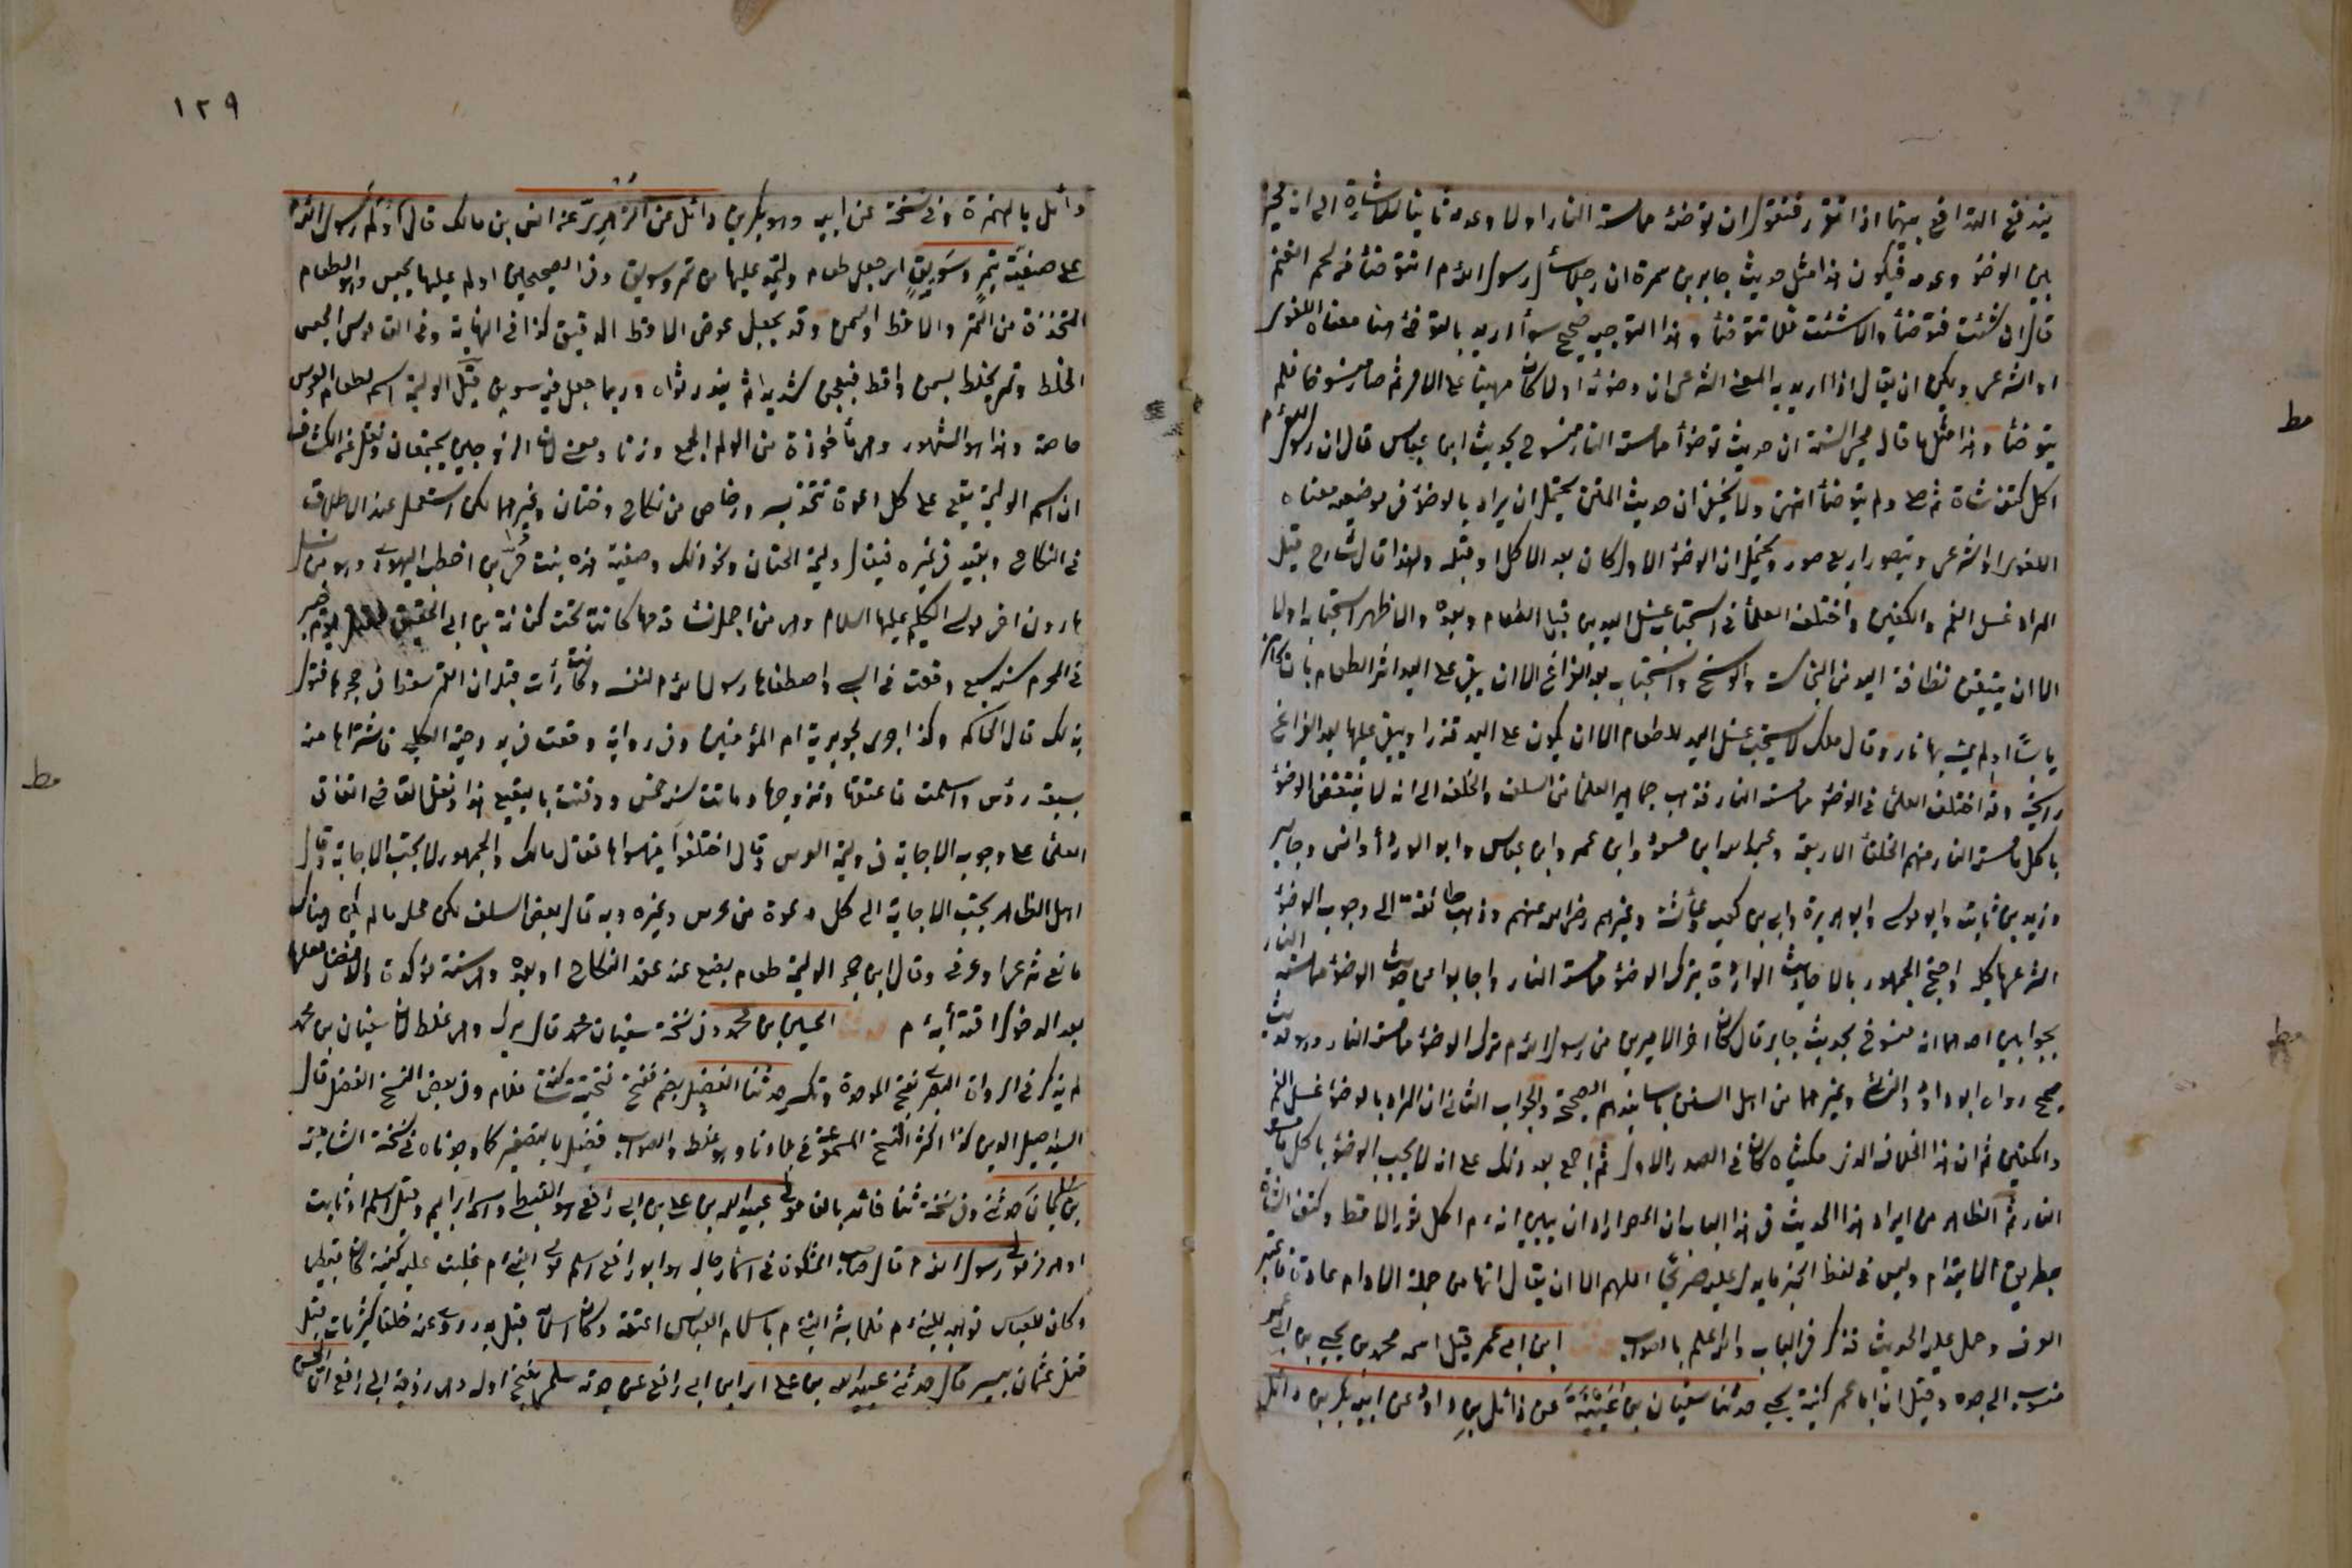 يندفع التدافع بينهما اذا تقرر فنقول ان توضئه مما مسته النار اولا وعدمه ثانيا للاشارة الى انه مخير
بين الوضوء وعدمه فيكون هذا مثل حديث جابر بن سمرة ان رجلا سأل رسول الله م انتوضأ من لحم الغنم
قال ان شئت فتوضأ وان شئت فلا تتوضأ وهذا التوجيه صحيح سواء اريد بالتوضئ هنا معناه اللغوى
او الشرعى ويمكن ان يقال اذا اريد به المعنى الشرعى ان وضوئه اولا كان مبنيا على الامر ثم صار منسوخا فلم
يتوضأ وهذا مثل ما قال محيى السنة ان حديث توضؤا مما مسته النار منسوخ بحديث ابن عباس قال ان رسول الله م
اكل كتف شاة ثم صلى ولم يتوضأ انتهى ولا يخفى ان حديث المتن يحتمل ان يراد بالوضوء فى موضعيه معناه
اللغوى او الشرعى ويتصور اربع صور ويحتمل ان الوضوء الاول كان بعد الاكل او قبله ولهذا قال شارح قيل
المراد غسل الفم والكفين واختلف العلماء فى استحباب غسل اليدين قبل الطعام وبعده والاظهر استحبابه اولا
الا ان يتيقن نظافة اليد من النجاسة والوسخ واستحبابه بعد الفراغ الا ان يبقى على اليد اثر الطعام بان كان
يابسا او لم يمسه بها نار وقال مالك لا يستحب غسل اليد للطعام الا ان يكون على اليد قذر او يبقى عليها بعد الفراغ
رائحة وقد اختلف العلماء فى الوضوء مما مسته النار فذهب جماهير العلماء من السلف والخلف الى انه لا ينتقض الوضوء
باكل ما مسته النار منهم الخلفاء الاربعة وعبد الله ابن مسعود وابن عمر وابن عباس وابو الدرداء وانس وجابر
وزيد بن ثابت وابو موسى وابو هريرة وابى بن كعب وعائشة وغيرهم رضى الله عنهم وذهب طائفة الى وجوب الوضوء
الشرعى باكله واحتج الجمهور بالاحاديث الواردة بترك الوضوء مما مسته النار واجابوا عن حديث الوضوء مما مسته النار
بجوابين احدهما انه منسوخ بحديث جابر قال كان اخر الامرين من رسول الله م ترك الوضوء مما مسته النار وهو حديث
صحيح رواه ابو داود والنسائى وغيرهما من اهل السنن باسانيدهم الصحيحة والجواب الثانى ان المراد بالوضوء غسل الفم
والكفين ثم ان هذا الخلاف الذى حكيناه كان فى الصدر الاول ثم اجمع بعد ذلك على انه لا يجب الوضوء باكل ما مسته
النار ثم الظاهر من ايراد هذا الحديث فى هذا الباب ان المصر اراد ان يبين انه م اكل ثور الاقط وكتف الشاة
بطريق الايتدام وليس فى لفظ الخبر ما يدل عليه صريحا اللهم الا ان يقال انها من جملة الادام عادة فاعتبر
العرف وحمل عليه الحديث فذكر فى الباب والله اعلم بالصواب حدثنا ابن ابى عمر قيل اسمه محمد بن يحيى بن ابى عمر
منسوب الى جده وقيل ان ابا عمر كنية يحيى حدثنا سفيان بن عيينة عن وائل بن داود عن ابنه بكر بن وائل
١٢٩
وائل بالهمزة وفى نسخة عن ابيه وهو بكر بن وائل عن الزهرى عن انس بن مالك قال اولم رسول الله م
على صفية بتمر وسويق اى جعل طعام وليمة عليها من تمر وسويق وفى الصحيحين اولم عليها بحيس وهو الطعام
المتخذة من التمر والاقط والسمن وقد يجعل عوض الاقط الدقيق كذا فى النهاية وفى القاموس الحيس
الخلط وتمر يخلط بسمن واقط فيعجن شديدا ثم يندر نواه وربما جعل فيه سويق قيل الوليمة اسم لطعام العرس
خاصة وهذا هو المشهور وهى مأخوذة من الولم الجمع وزنا ومعنى لان الزوجين يجتمعان ونقل عن الكشاف
ان اسم الوليمة يقع على كل دعوة تتخذ لسرور خاص من نكاح وختان وغيرهما لكن استعمل عند الاطلاق
فى النكاح ويقيد فى غيره فيقال وليمة الختان ونحو ذلك وصفية هذه بنت حيى بن اخطب اليهودى وهو من نسل
هارون اخى موسى الكليم عليهما السلام وهى من اجمل نساء قومها كانت تحت كنانة بن ابى الحقيق يوم خيبر
فى المحرم سنة سبع وقعت فى السبى واصطفاها رسول الله م لنفسه وكانت رأت قبل ان القمر سقط فى حجرها فتؤل
بذلك قال الحاكم وكذا جرى لجويرية ام المؤمنين وفى رواية وقعت فى يد دحية الكلبى فاشتراها منه
بسبعة رؤس واسلمت فاعتقها وتزوجها وماتت سنة خمس ودفنت بالبقيع هذا ونقل القاضى اتفاق
العلماء على وجوب الاجابة فى وليمة العرس وقال اختلفوا فيما سواها فقال مالك والجمهور لا يجب الاجابة وقال
اهل الظاهر يجب الاجابة الى كل دعوة من عرس وغيره وبه قال بعض السلف لكن محله ما لم يكن هناك
مانع شرعى او عرفى وقال ابن حجر الوليمة طعام يصنع عند عقد النكاح او بعده وهى سنة مؤكدة والافضل فعلها
بعد الدخول اقتداء به م حدثنا الحسين بن محمد وفى نسخة سفيان محمد قال ميرك وهو غلط لان سفيان بن محمد
لم يذكر فى الرواة البصرى بفتح الموحدة وتكسر حدثنا الفضيل بضم ففتح فتحتية ساكنة فلام وفى بعض النسخ الفضل قال
السيد اصيل الدين كذا اكثر النسخ المسموعة فى بلادنا وهو غلط والصواب فضيل بالتصغير كما وجدناه فى نسخة الشامية
بن سليمان حدثنى وفى نسخة ثنا فائد بالفاء مولى عبيد الله بن على بن ابى رافع هو القبطى واسمه ابراهيم وقيل اسلم او ثابت
او هرمز مولى رسول الله م قال صاحب المشكوة فى اسماء رجاله هو ابو رافع اسلم مولى النبى م غلبت عليه كنيته كان قبطيا
وكان للعباس فوهبه للنبى م فلما بشر النبى م باسلام العباس اعتقه وكان اسلامه قبل بدر روى عنه خلق كثير مات قبل
قتل عثمان بيسير قال حدثنى عبيد الله بن على اى ابن ابى رافع عن جدته سلمى بفتح اوله وهى زوجة ابى رافع ان الحسن
مط
مط
مط